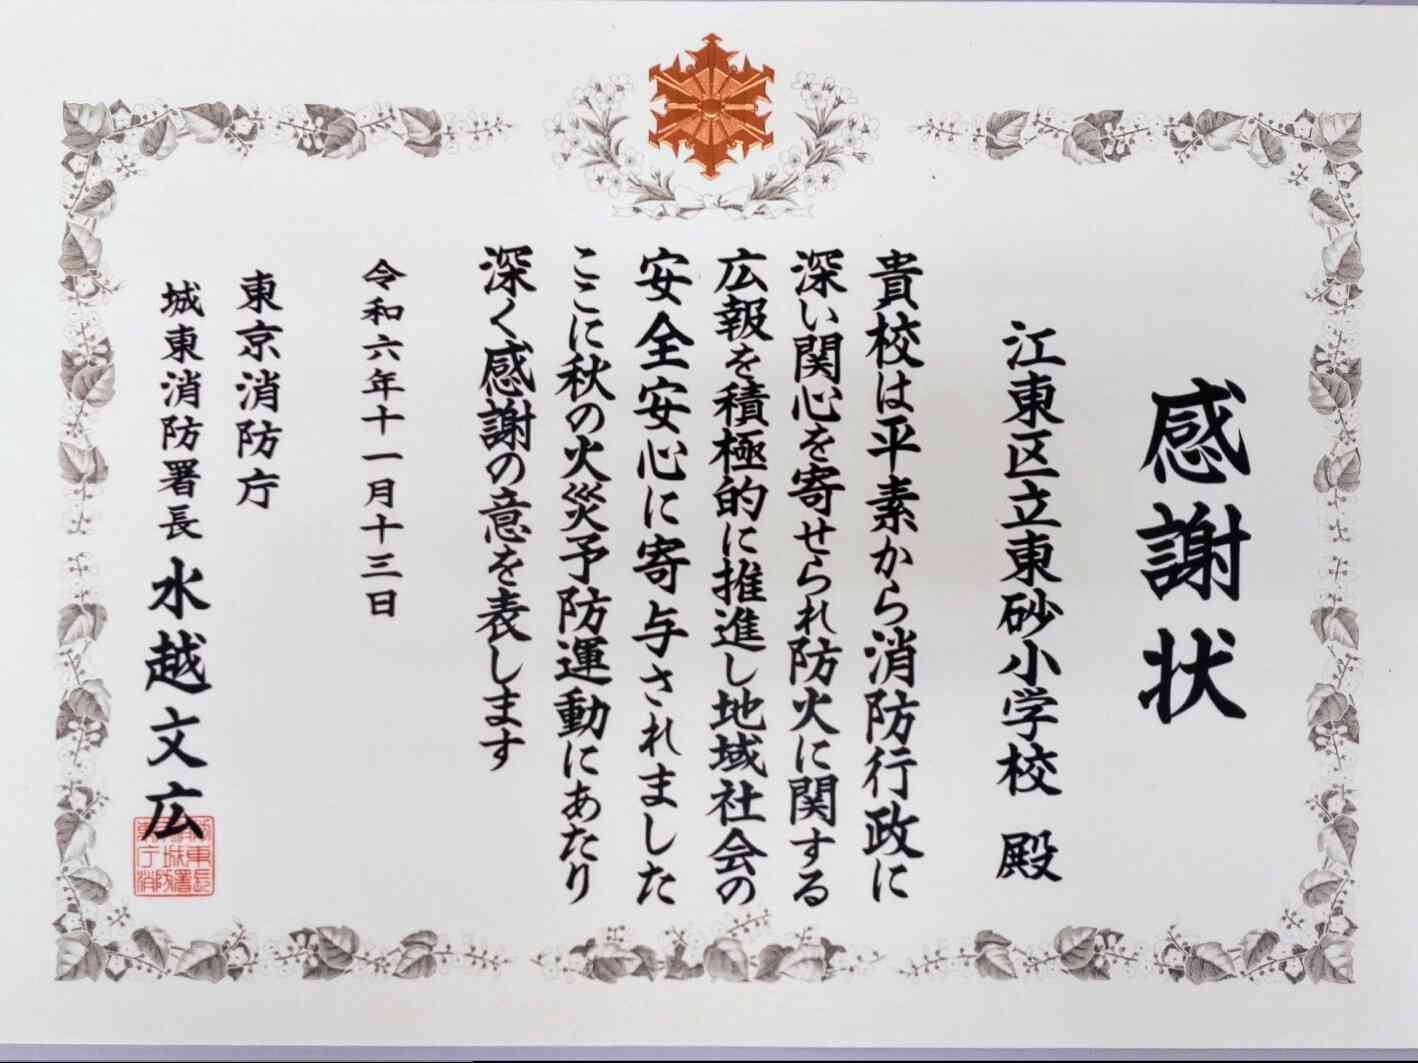 感謝状
江東区立東砂小学校 殿
貴校は平素から消防行政に
深い関心を寄せられ防火に関する
広報を積極的に推進し地域社会の
安全安心に寄与されました
ここに秋の火災予防運動にあたり
深く感謝の意を表します
令和六年十一月十三日
東京消防庁
城東消防署長 水越文広